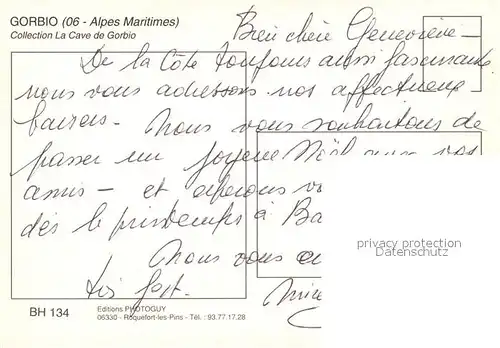 GORBIO (06 - Alpes Maritimes)
Collection La Cave de Gorbio
Bien chère Geneviève -
De la Côte toujours aussi fascinante
nous vous adressons nos affectueux
baisers. Nous vous souhaitons de
passer un joyeux Noël avec vos
amis - et espérons
dès le printemps à Ba
Nous vous
très fort.
privacy protection
Datenschutz
BH 134
Editions PHOTOGUY
06330 - Roquefort-les-Pins - Tél. : 93.77.17.28